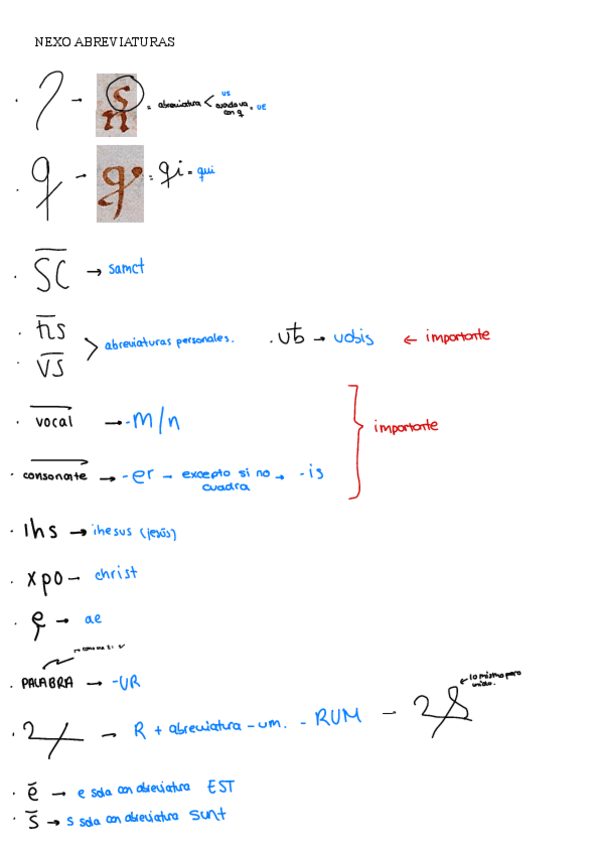 NEXO ABREVIATURAS
= abreviatura < us
cuando va con q = UE
= qi = qui
SC → samct
hs
vs
> abreviaturas personales. . Vb → vobis ← importante
vocal → -m/n
consonante → -er → excepto si no cuadra → -is
} importante
Ihs → ihesus (jesús)
xpo - christ
ę → ae
PALABRA → -UR
→ R + abreviatura - um. - RUM -
← lo mismo pero unido.
ē → e sola con abreviatura EST
s̄ → s sola con abreviatura sunt